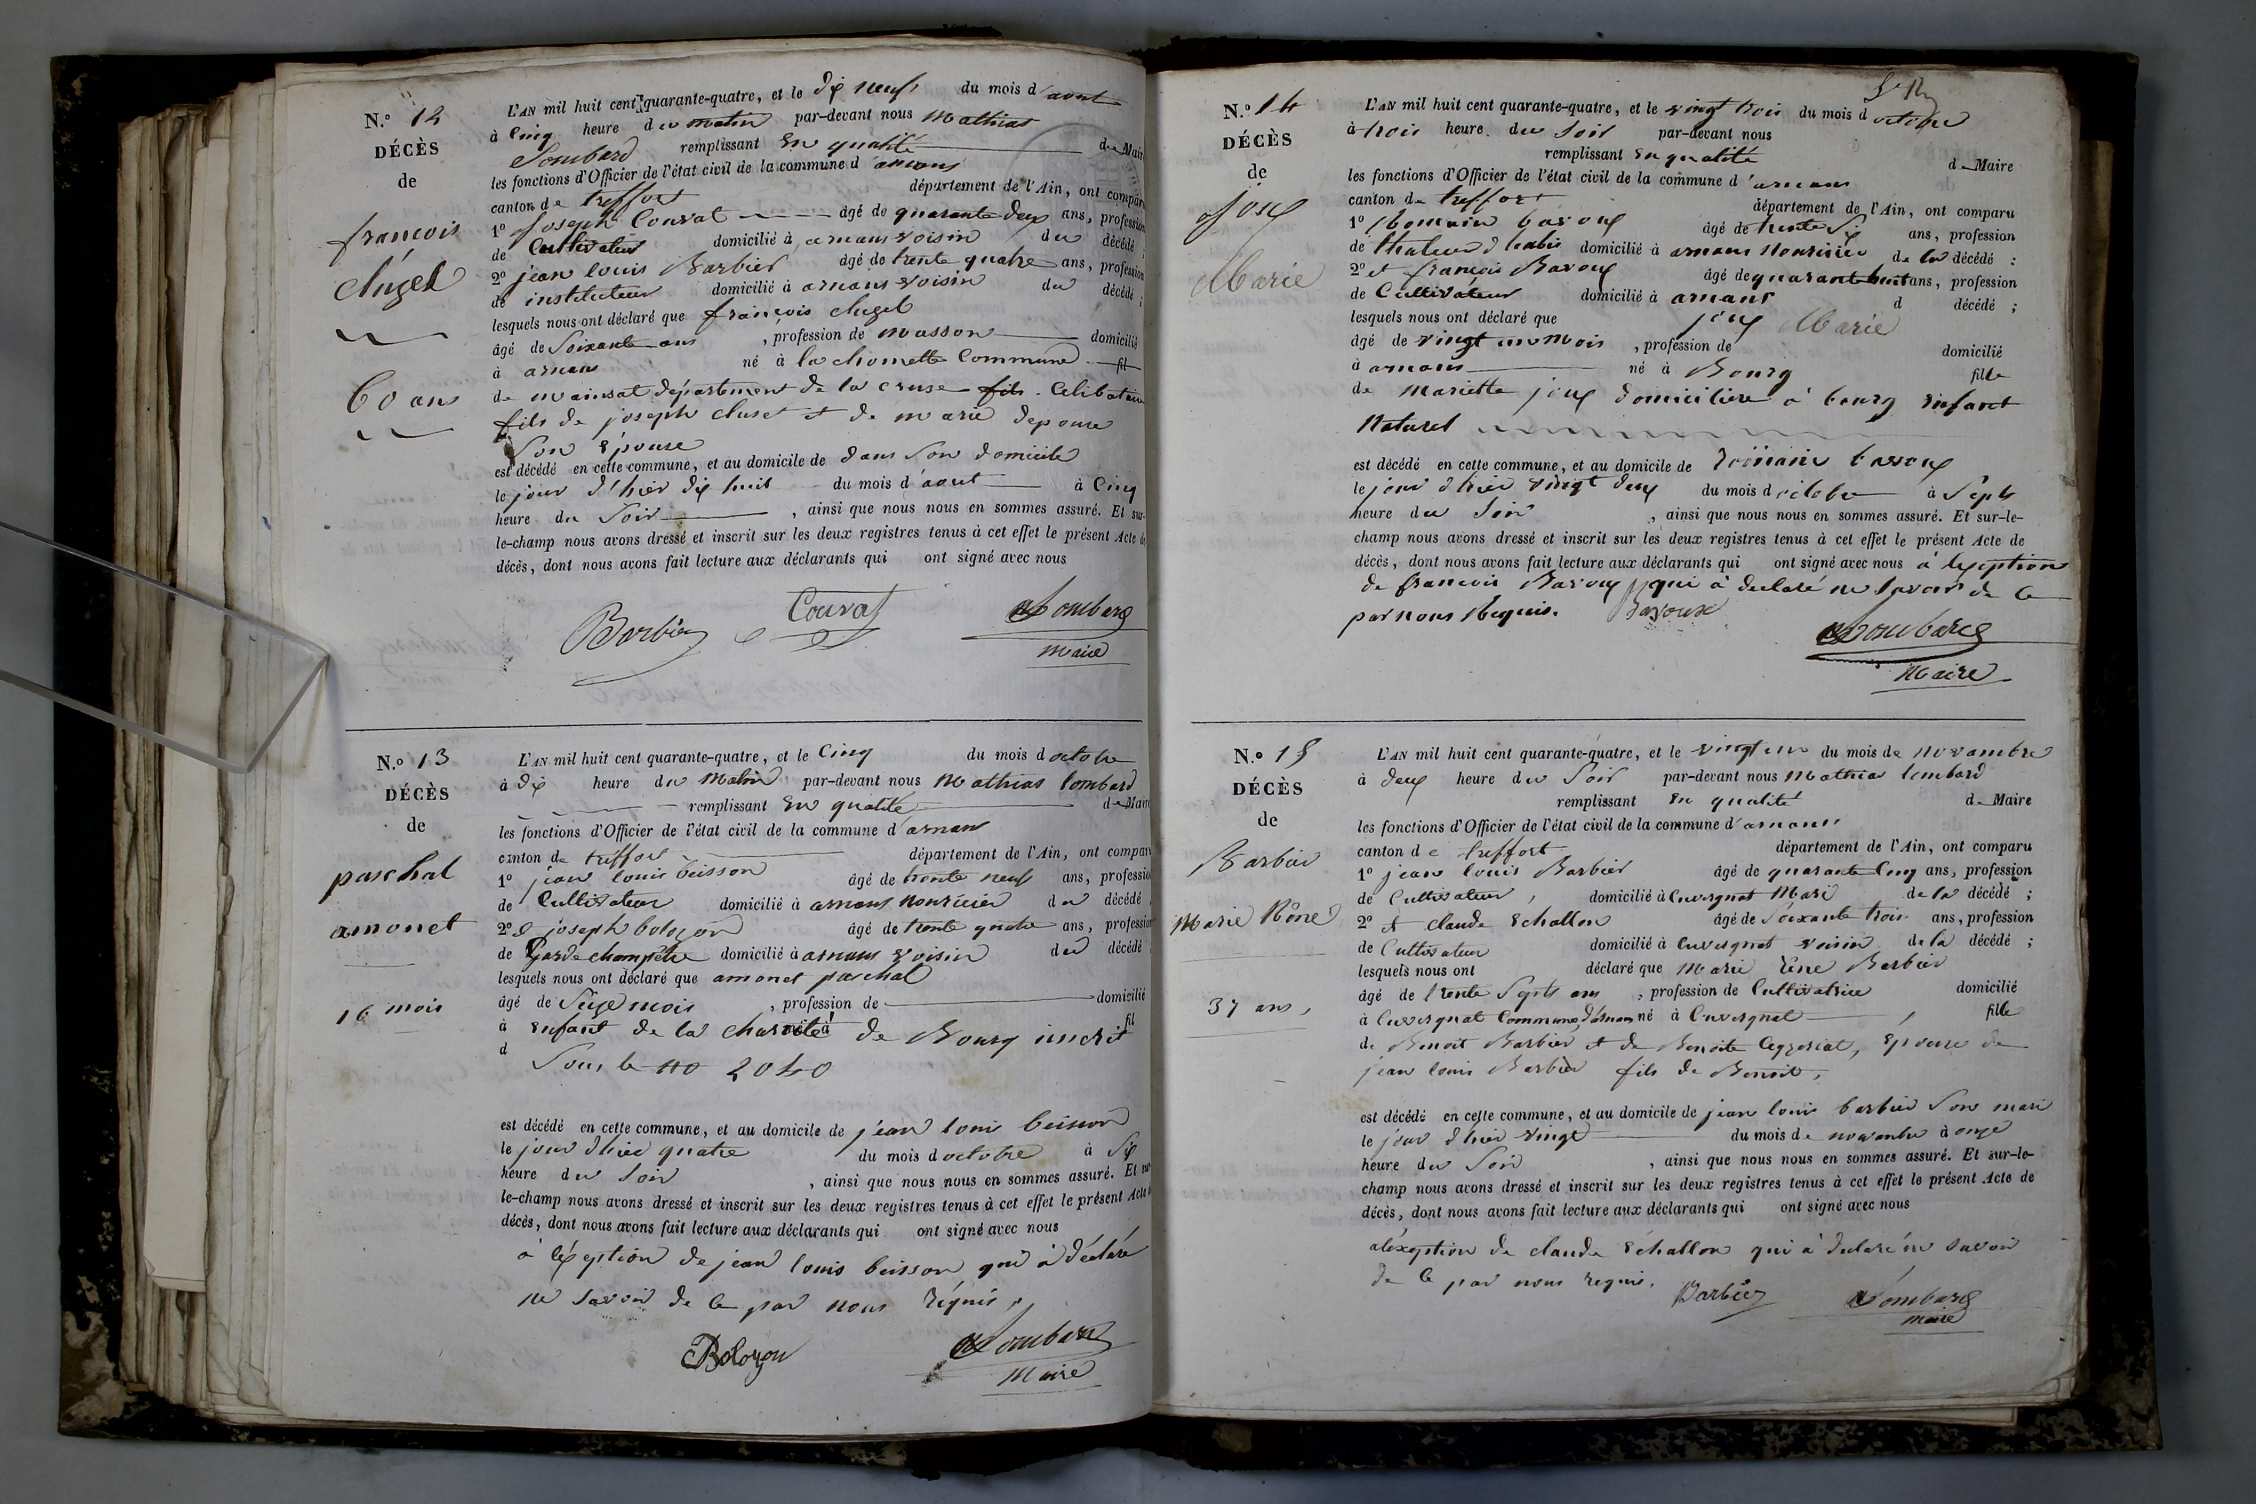 N.o 12
DÉCÈS
de
françois
clugel
60 ans
L'AN mil huit cent quarante-quatre, et le dix neuf du mois d'aout
à Cinq heure du matin par-devant nous Mathias
Lombard remplissant En qualité de Maire
les fonctions d'Officier de l'état civil de la commune d'arnans
canton de treffort département de l'Ain, ont comparu
1o Joseph Couvat âgé de quarante deux ans, profession
de Cultivateur domicilié à arnans voisin du décédé ;
2o jean louis Barbier âgé de trente quatre ans, profession
de instituteur domicilié à arnans voisin du décédé ;
lesquels nous ont déclaré que françois clugel
âgé de Soixante ans , profession de masson domicilié
à arnans né à la chomette Commune fil
de mainsat département de la cruse fils Celibataire
fils de joseph cluset et de marie depouse
Son Épouse
est décédé en cette commune, et au domicile de dans Son domicile
le jour d'hier dix huit du mois d'aout à Cinq
heure du Soir , ainsi que nous nous en sommes assuré. Et sur-
le-champ nous avons dressé et inscrit sur les deux registres tenus à cet effet le présent Acte de
décès, dont nous avons fait lecture aux déclarants qui ont signé avec nous
Barbier Couvat Lombard
Maire
N.o 13
DÉCÈS
de
paschal
amonet
16 mois
L'AN mil huit cent quarante-quatre, et le Cinq du mois d octobre
à dix heure du Matin par-devant nous Mathias lombard
remplissant En qualité de Maire
les fonctions d'Officier de l'état civil de la commune d'arnans
canton de treffort département de l'Ain, ont comparu
1o jean louis buisson âgé de trente neuf ans, profession
de Cultivateur domicilié à arnans nouricier du décédé
2o joseph bolozon âgé de trente quatre ans, profession
de Garde champêtre domicilié à arnans voisin du décédé
lesquels nous ont déclaré que amonet paschal
âgé de Seize mois , profession de domicilié
à Enfant de la charité né à de Bourg inscrit fil
d Sous le no 2040
est décédé en cette commune, et au domicile de jean louis buisson
le jour d'hier quatre du mois d octobre à Six
heure du Soir , ainsi que nous nous en sommes assuré. Et sur-
le-champ nous avons dressé et inscrit sur les deux registres tenus à cet effet le présent Acte de
décès, dont nous avons fait lecture aux déclarants qui ont signé avec nous
a léxeption de jean louis buisson qui à déclaré
ne Savoir de Ce par nous réquis,
Bolozon Lombard
Maire
N.o 14
DÉCÈS
de
joux
Marie
L'AN mil huit cent quarante-quatre, et le vingt trois du mois d octobre
à trois heure du Soir par-devant nous
remplissant En qualité de Maire
les fonctions d'Officier de l'état civil de la commune d'arnans
canton de treffort département de l'Ain, ont comparu
1o Romain baroux âgé de trente Six ans, profession
de domicilié à arnans Nouricier de la décédé :
2o et françois Baroux âgé de quarante huit ans, profession
de Cultivateur domicilié à arnans d décédé ;
lesquels nous ont déclaré que joux Marie
âgé de vingt un Mois , profession de domicilié
à arnans né à Bourg fille
de Mariette joux domiciliére à bourg Enfant
Naturel
est décédé en cette commune, et au domicile de Romain baroux
le jour d'hier vingt deux du mois d octobre à Septs
heure du Soir , ainsi que nous nous en sommes assuré. Et sur-le-
champ nous avons dressé et inscrit sur les deux registres tenus à cet effet le présent Acte de
décès, dont nous avons fait lecture aux déclarants qui ont signé avec nous à lexeption
de francois Baroux qui à declaré ne Savoir de Ce
par nous Requis. Baroux
Lombard
Maire
N.o 15
DÉCÈS
de
Barbier
Marie Rêne
37 ans,
L'AN mil huit cent quarante-quatre, et le vingt un du mois de novambre
à deux heure du Soir par-devant nous Mathias lombard
remplissant En qualité de Maire
les fonctions d'Officier de l'état civil de la commune d'arnans
canton de treffort département de l'Ain, ont comparu
1o jean louis Barbier âgé de quarante Cinq ans, profession
de Cultivateur , domicilié à Cuvergnat Mari de la décédé ;
2o et claude Echallon âgé de Soixante trois ans, profession
de Cultivateur domicilié à Cuvergnat voisin de la décédé ;
lesquels nous ont déclaré que Marie Rêne Barbier
âgé de trente Septs ans , profession de Cultivatrice domicilié
à Cuvergnat Commune d'arnans né à Cuvergnat , fille
de Benoit Barbier et de Benoite Ceyzeriat, Epouse de
jean louis Barbier fils de Benoit,
est décédé en cette commune, et au domicile de jean louis barbier Son mari
le jour d'hier vingt du mois de novambre à onze
heure du Soir , ainsi que nous nous en sommes assuré. Et sur-le-
champ nous avons dressé et inscrit sur les deux registres tenus à cet effet le présent Acte de
décès, dont nous avons fait lecture aux déclarants qui ont signé avec nous
aléxeption de claude Echallon qui à declaré ne savoir
de Ce par nous requis. Barbier Lombard
maire